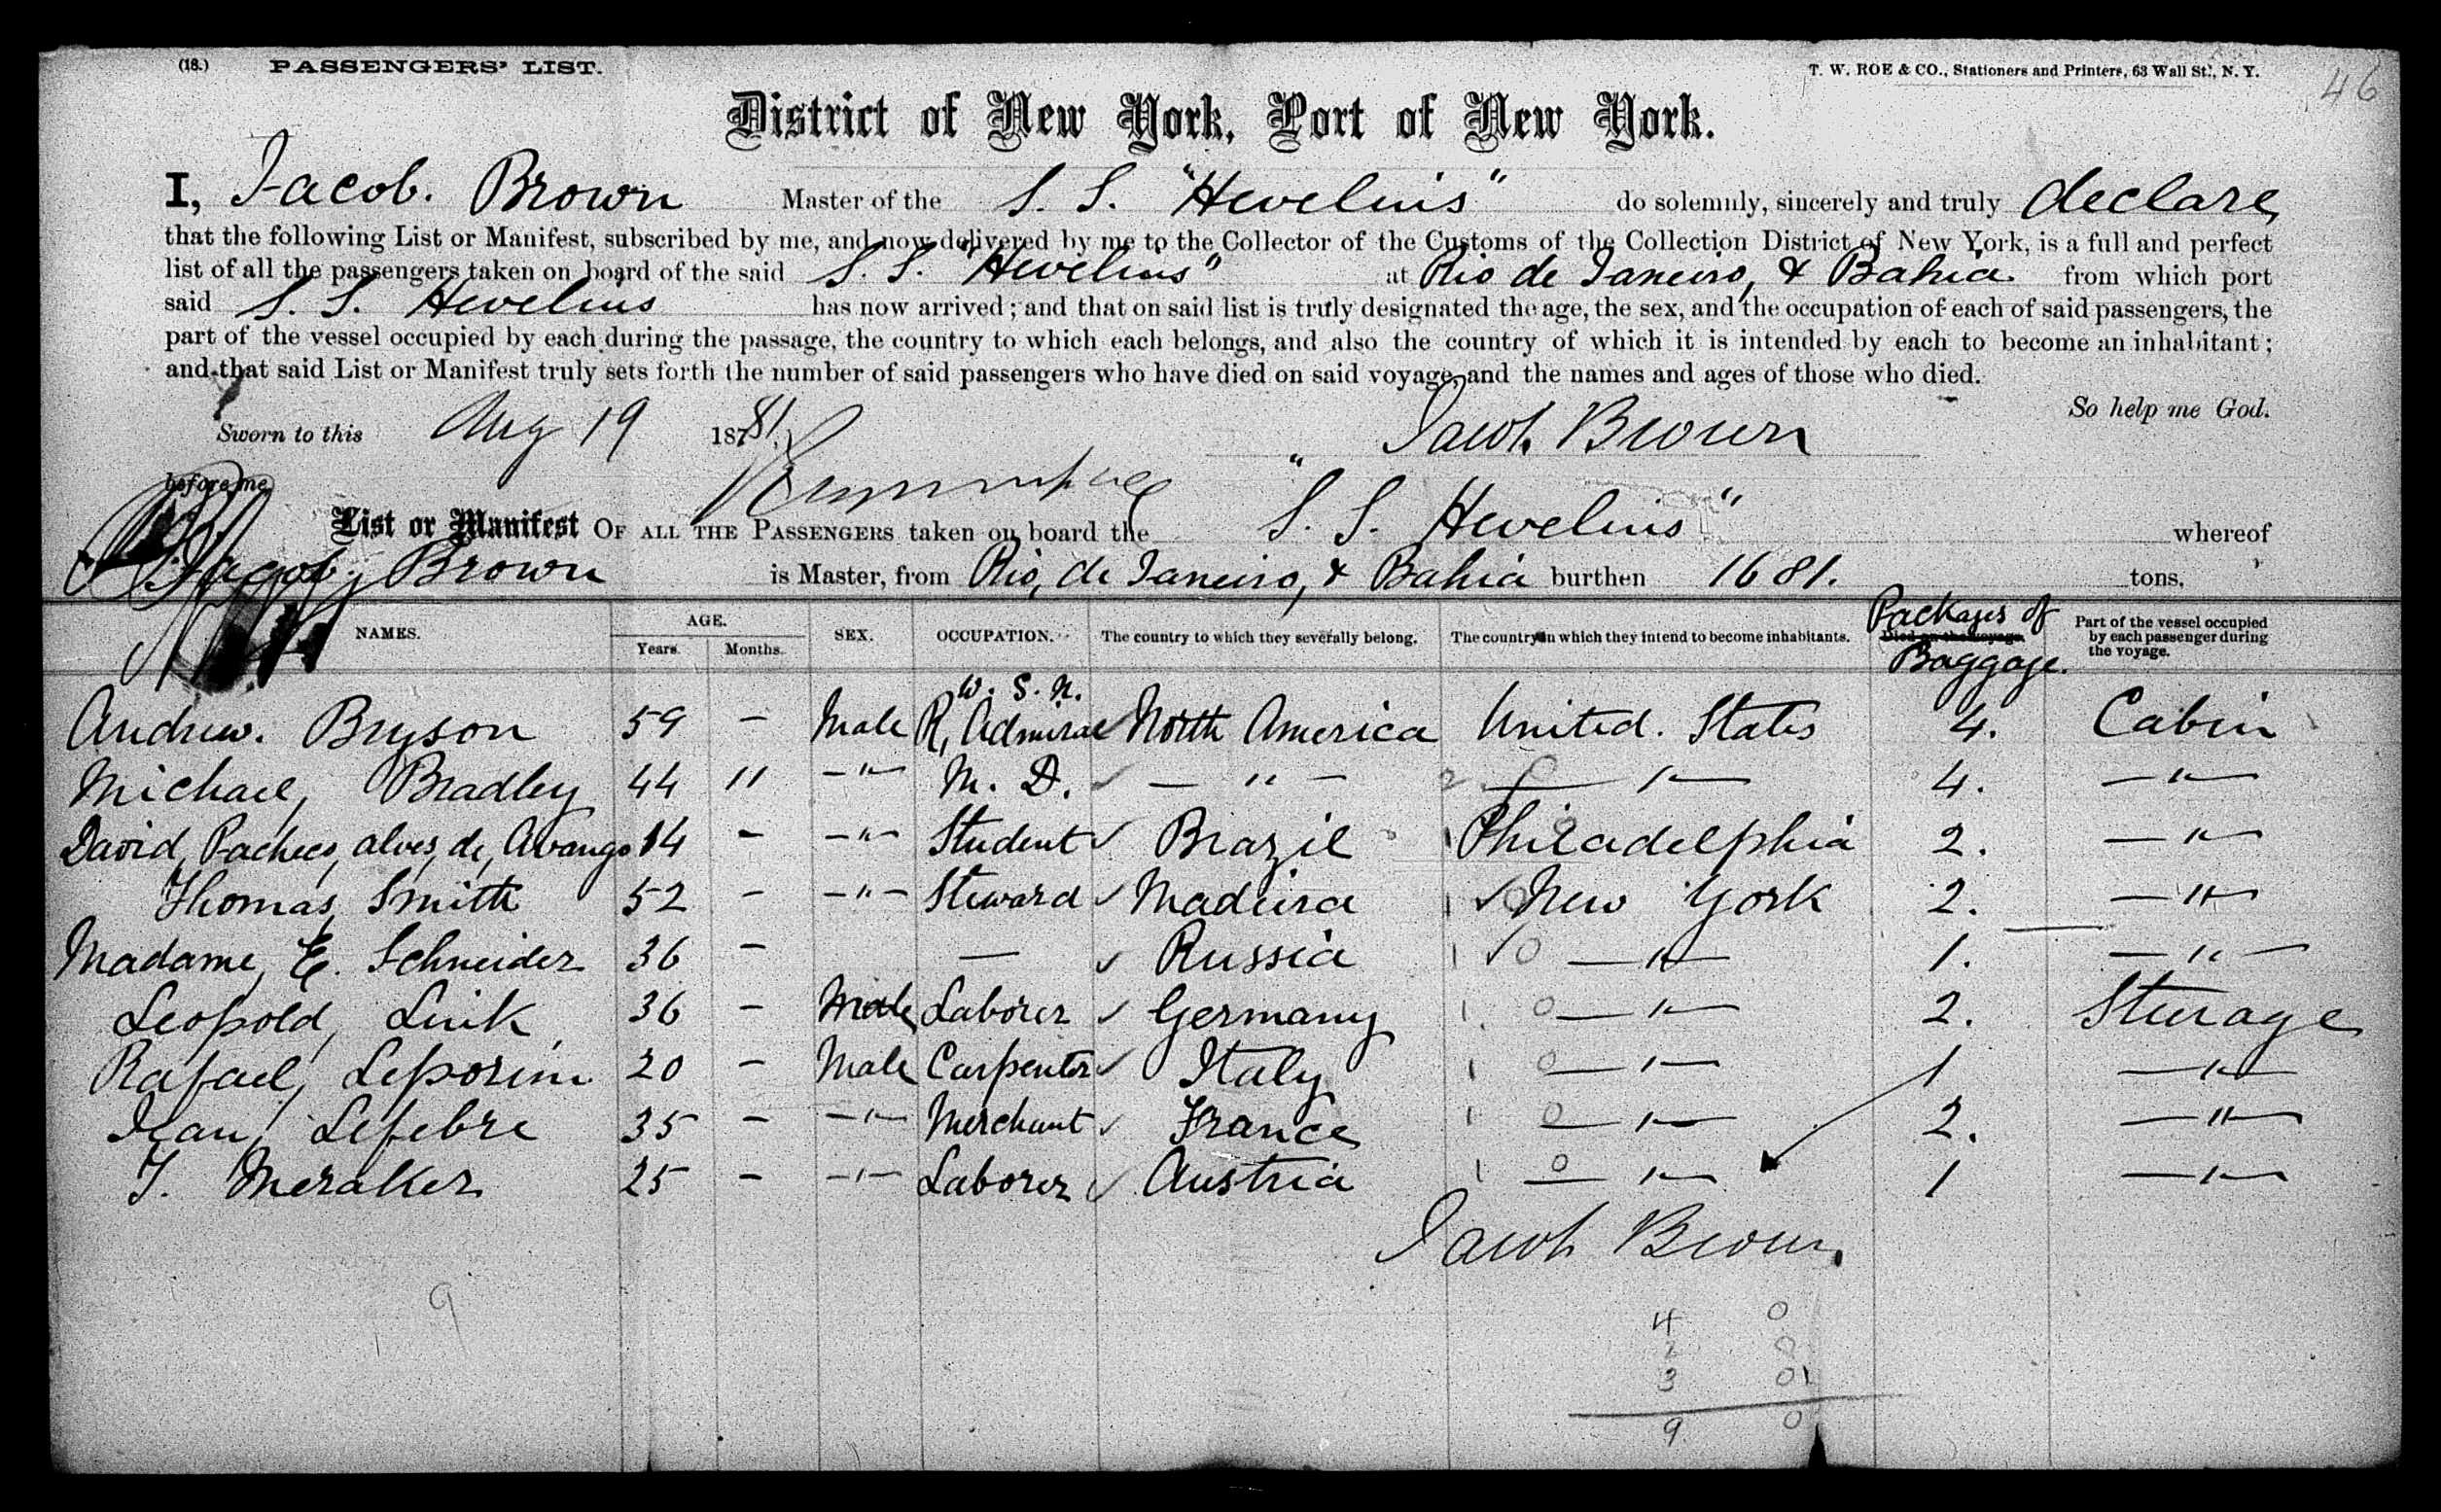 (18.) PASSENGERS' LIST. T. W. ROE & CO., Stationers and Printers, 63 Wall St., N. Y. 46
District of New York, Port of New York.
I, Jacob. Brown Master of the S. S. "Hevelius" do solemnly, sincerely and truly declare,
that the following List or Manifest, subscribed by me, and now delivered by me to the Collector of the Customs of the Collection District of New York, is a full and perfect
list of all the passengers taken on board of the said S. S. "Hevelius" at Rio de Janeiro, & Bahia from which port
said S. S. Hevelius has now arrived; and that on said list is truly designated the age, the sex, and the occupation of each of said passengers, the
part of the vessel occupied by each during the passage, the country to which each belongs, and also the country of which it is intended by each to become an inhabitant;
and that said List or Manifest truly sets forth the number of said passengers who have died on said voyage, and the names and ages of those who died.
So help me God.
Sworn to this Aug 19 1881 Jacob Brown
before me
List or Manifest OF ALL THE PASSENGERS taken on board the "S. S. Hevelius" whereof
Jacob, Brown is Master, from Rio, de Janeiro, & Bahia burthen 1681. tons.
NAMES. AGE. Years. Months. SEX. OCCUPATION. The country to which they severally belong. The country in which they intend to become inhabitants. Packages of Baggage. Died on the voyage. Part of the vessel occupied by each passenger during the voyage.
Andrew. Bryson 59 - Male R, Admiral U. S. N. North America United. States 4. Cabin
Michael, Bradley 44 11 -"- M. D. - " - -"- 4. -"-
David, Pacheco, alves, de, Avango 14 - -"- Student Brazil 1 Philadelphia 2. -"-
Thomas, Smith 52 - -"- Steward Madeira 1 New York 2. -"-
Madame, E. Schneider 36 - - Russia 1 0 -"- 1. -"-
Leopold, Link 36 - Male, Laborer Germany 1. 0 -"- 2. Sturage
Rafael, Leporini 20 - Male Carpenter Italy 1 0 -"- 1 -"-
Jean, Lefebre 35 - -"- Merchant France 1 0 -"- 2. -"-
J. Meraker 25 - -"- Laborer Austria 1 0 -"- 1 -"-
Jacob Brown.
9
4 0
2 8
3 01
9 0